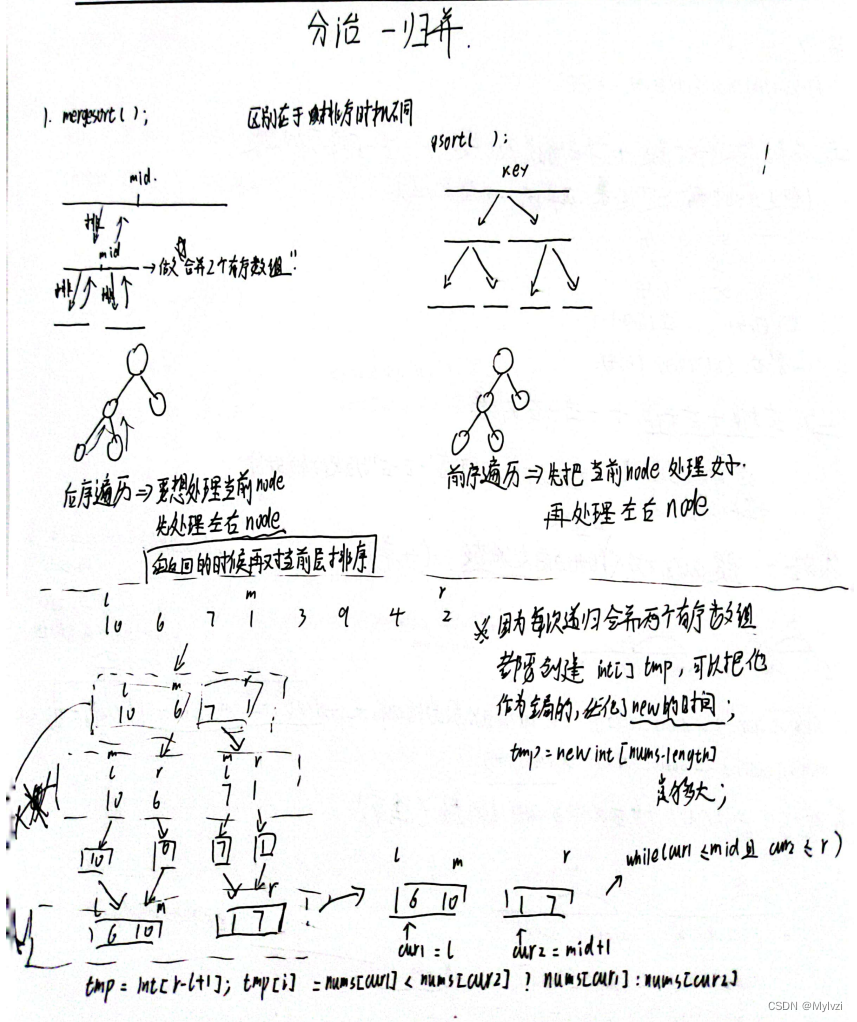 分治 - 归并.
1. mergesort( );
区别在于排序时机不同
qsort( );
mid.
key
排
mid
→做"合并2个有序数组"
排 排
后序遍历 ⇒ 要想处理当前node
先处理左右node
在返回的时候再对当前层排序
前序遍历 ⇒ 先把当前node处理好.
再处理左右node
l m r
10 6 7 1 3 9 4 2
※因为每次递归合并两个有序数组
都要创建 int[] tmp, 可以把他
作为全局的, 优化了new的时间;
tmp = new int[nums.length]
足够大;
l m r
10 6 7 1
m r m r
l l
10 6 7 1
10 6 7 1
l m r
6 10 1 7
l m r
6 10 1 7
cur1 = l cur2 = mid+1
while(cur1 ≤ mid且 cur2 ≤ r)
tmp = int[r-l+1]; tmp[i] = nums[cur1] < nums[cur2] ? nums[cur1] : nums[cur2]
CSDN @Mylvzi